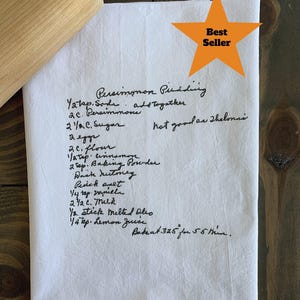 Best
Seller
Persimmon Pudding
1/2 tsp. Soda - add together
2 c. Persimmons
2 1/2 c. Sugar
Not good as Thelma's
2 eggs
2 c. flour
1/2 tsp. Cinnamon
2 tsp. Baking Powder
Dash Nutmeg
Pinch salt
1/4 tsp Vanilla
2 1/2 c. Milk
1/2 stick Melted Oleo
1/4 tsp. Lemon Juice
Bake at 325° for 55 Min.